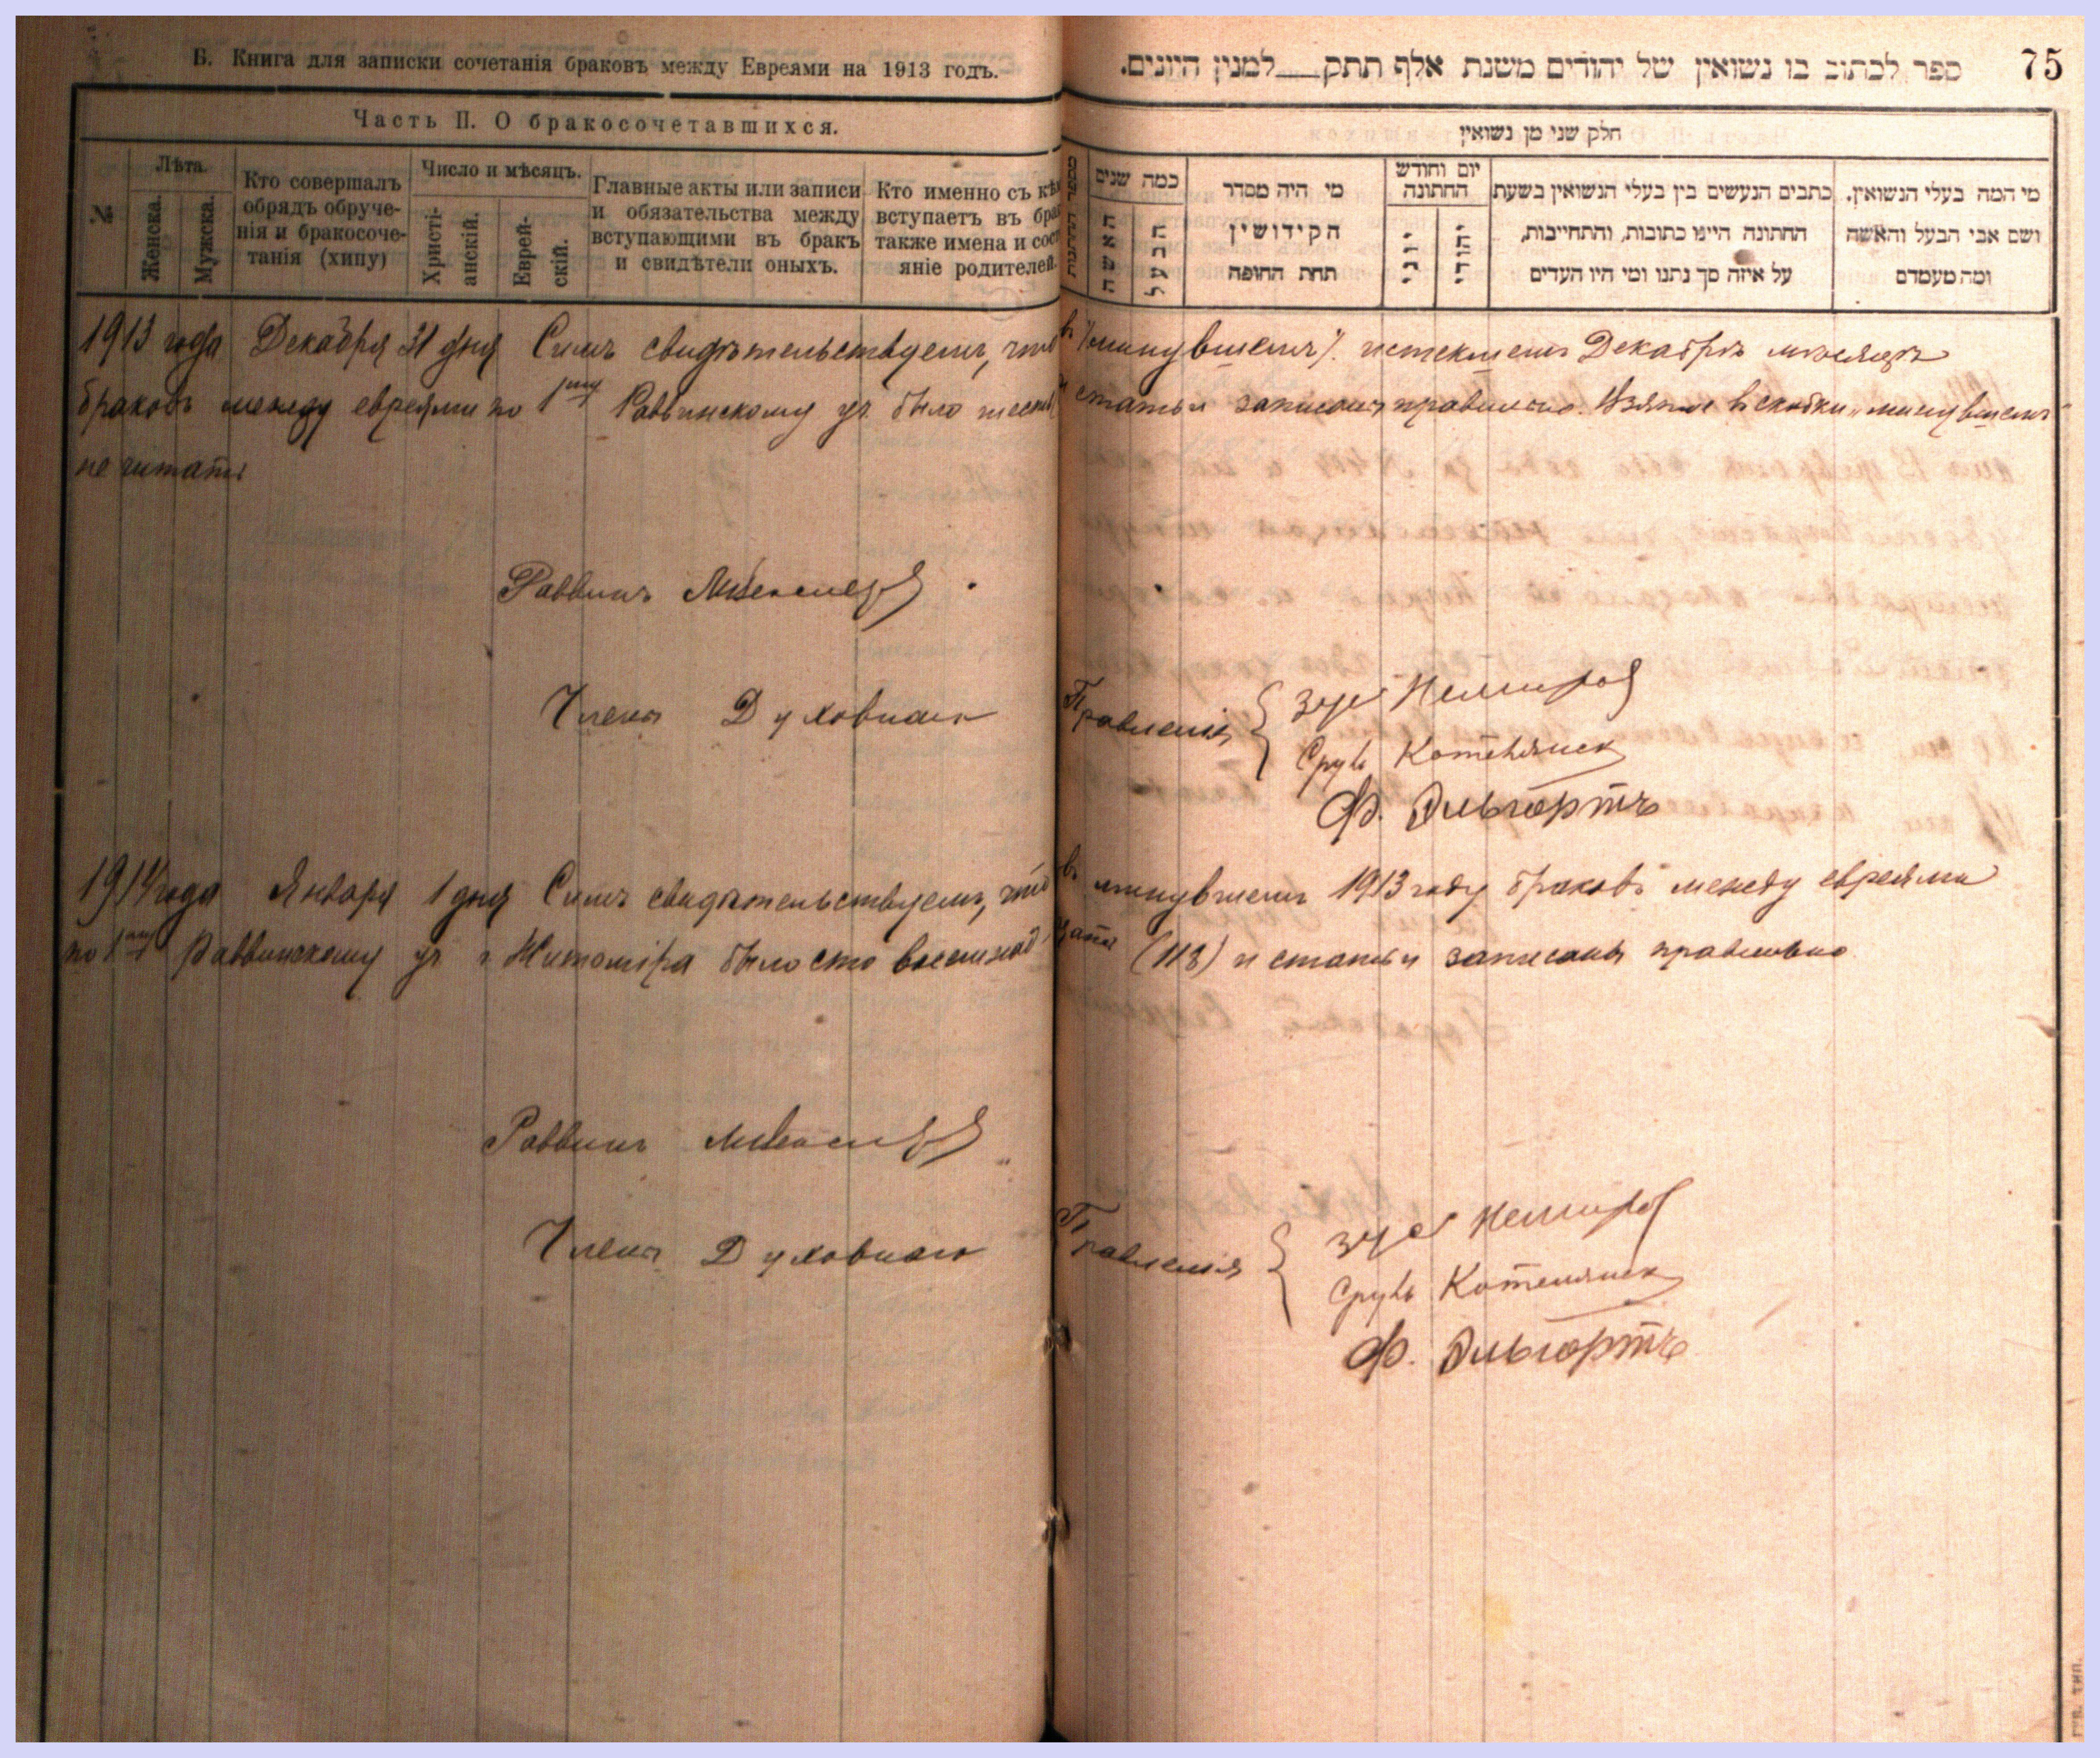 Б. Книга для записки сочетанія браковъ между Евреями на 1913 годъ.
Часть II. О бракосочетавшихся.
№
Лѣта.
Женска.
Мужска.
Кто совершалъ
обрядъ обруче-
нія и бракосоче-
танія (хипу)
Число и мѣсяцъ.
Христі-
анскій.
Еврей-
скій.
Главные акты или записи
и обязательства между
вступающими въ бракъ
и свидѣтели оныхъ.
Кто именно съ кѣм
вступаетъ въ бра
также имена и сост
яніе родителей.
75
ספר לכתוב בו נשואין של יהודים משנת אלף תתק___למנין היונים.
חלק שני מן נשואין
מספר החתונות
כמה שנים
האשה
הבעל
מי היה מסדר
הקידושין
תחת החופה
יום וחודש
החתונה
יוני
יהודי
כתבים הנעשים בין בעלי הנשואין בשעת
החתונה היינו כתובות, והתחייבות,
על איזה סך נתנו ומי היו העדים
מי המה בעלי הנשואין.
ושם אבי הבעל והאשה
ומה מעמדם
1913 года Декабря 31 дня Симъ свидѣтельствуемъ, что въ /минувшемъ/ истекшемъ Декабрѣ мѣсяцѣ
браковъ между евреями по 1му Раввинскому уч. было шесть и статьи записаны правильно. Взятое въ скобки „минувшемъ"
не читать
Раввинъ
Члены Духовнаго Правленія { Зус Немиров
Сруль Котелянск
Ф. Эльгортъ
1914 года Января 1 дня Симъ свидѣтельствуемъ, что въ минувшемъ 1913 году браковъ между евреями
по 1му Раввинскому уч г Житоміра было сто восемнадцать (118) и статьи записаны правильно
Раввинъ
Члены Духовнаго Правленія { Зус Немиров
Сруль Котелянск
Ф. Эльгортъ